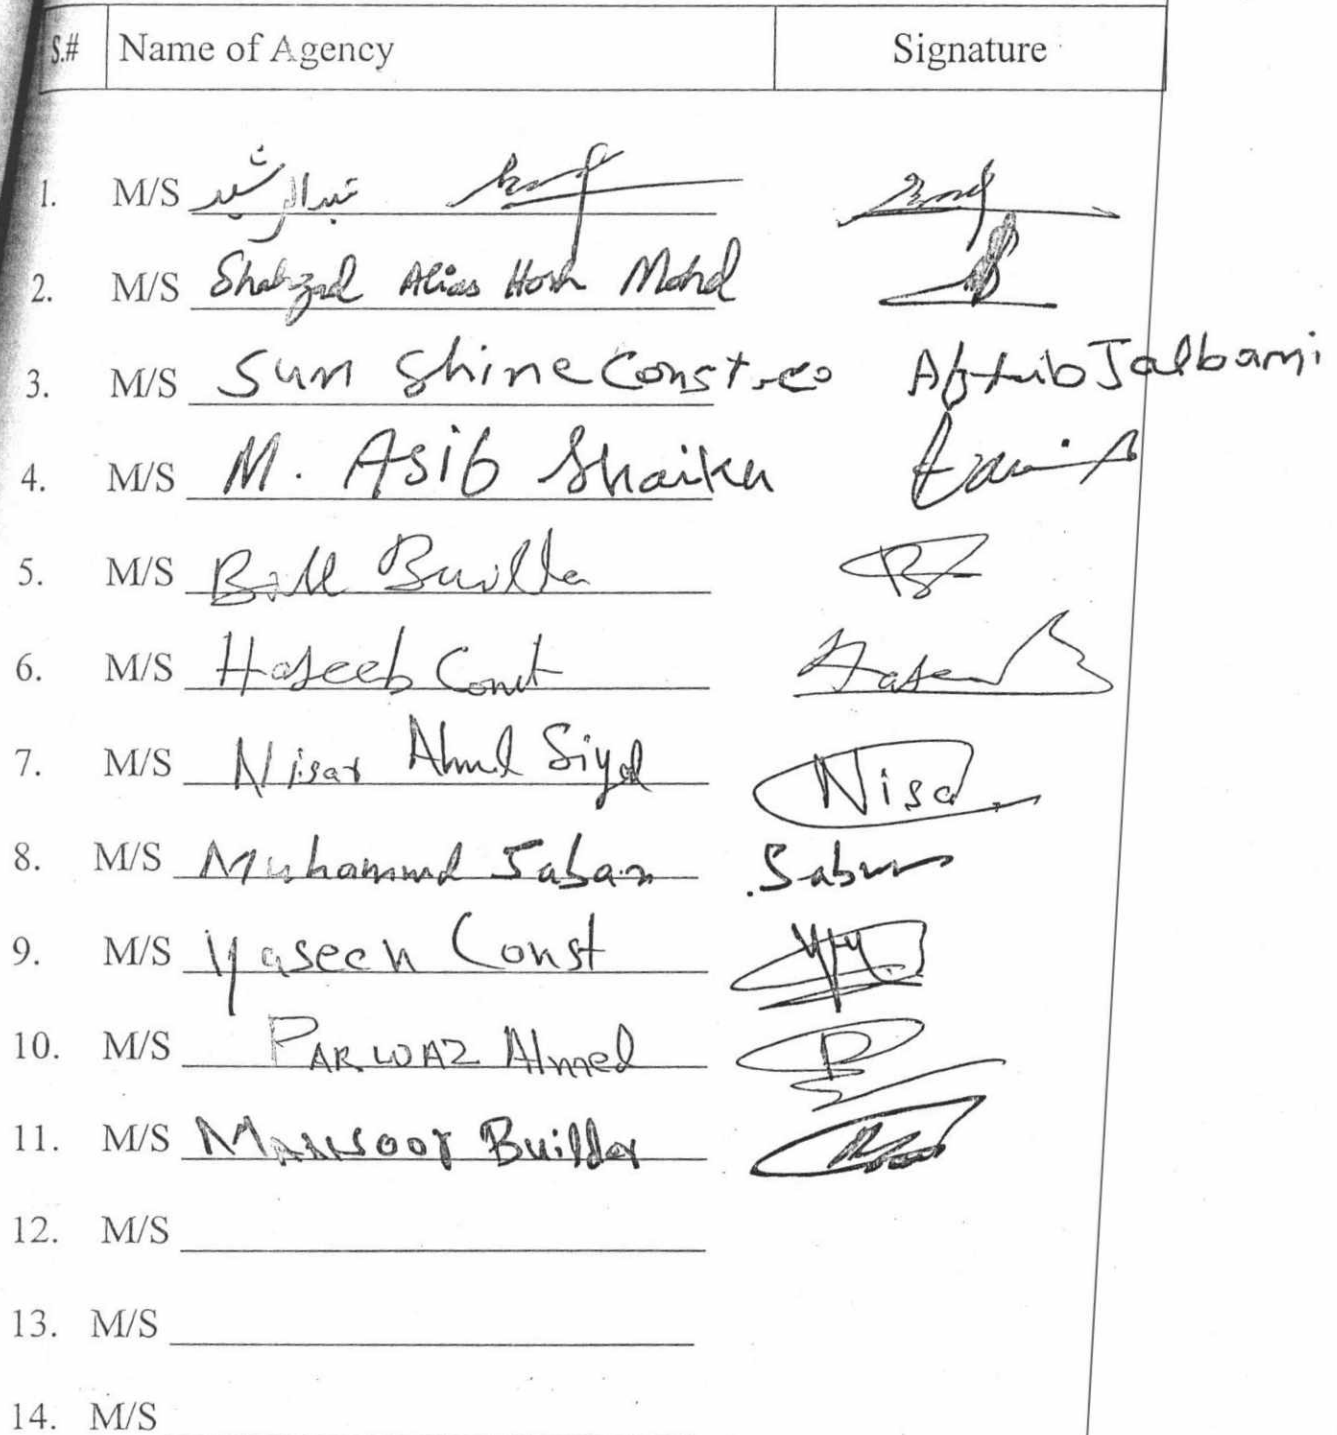 S.# Name of Agency Signature
1. M/S عبدالرشید
2. M/S Shahzad Alias Hosh Mohd
3. M/S Sun Shine Const.co Aftab Jalbani
4. M/S M. Asif Shaikh
5. M/S
6. M/S Haseeb Const Haseeb
7. M/S Nisar Ahmed Siyal Nisar
8. M/S Muhammad Saban
9. M/S Yaseen Const
10. M/S PARWAZ Ahmed
11. M/S Mansoor Builder
12. M/S
13. M/S
14. M/S